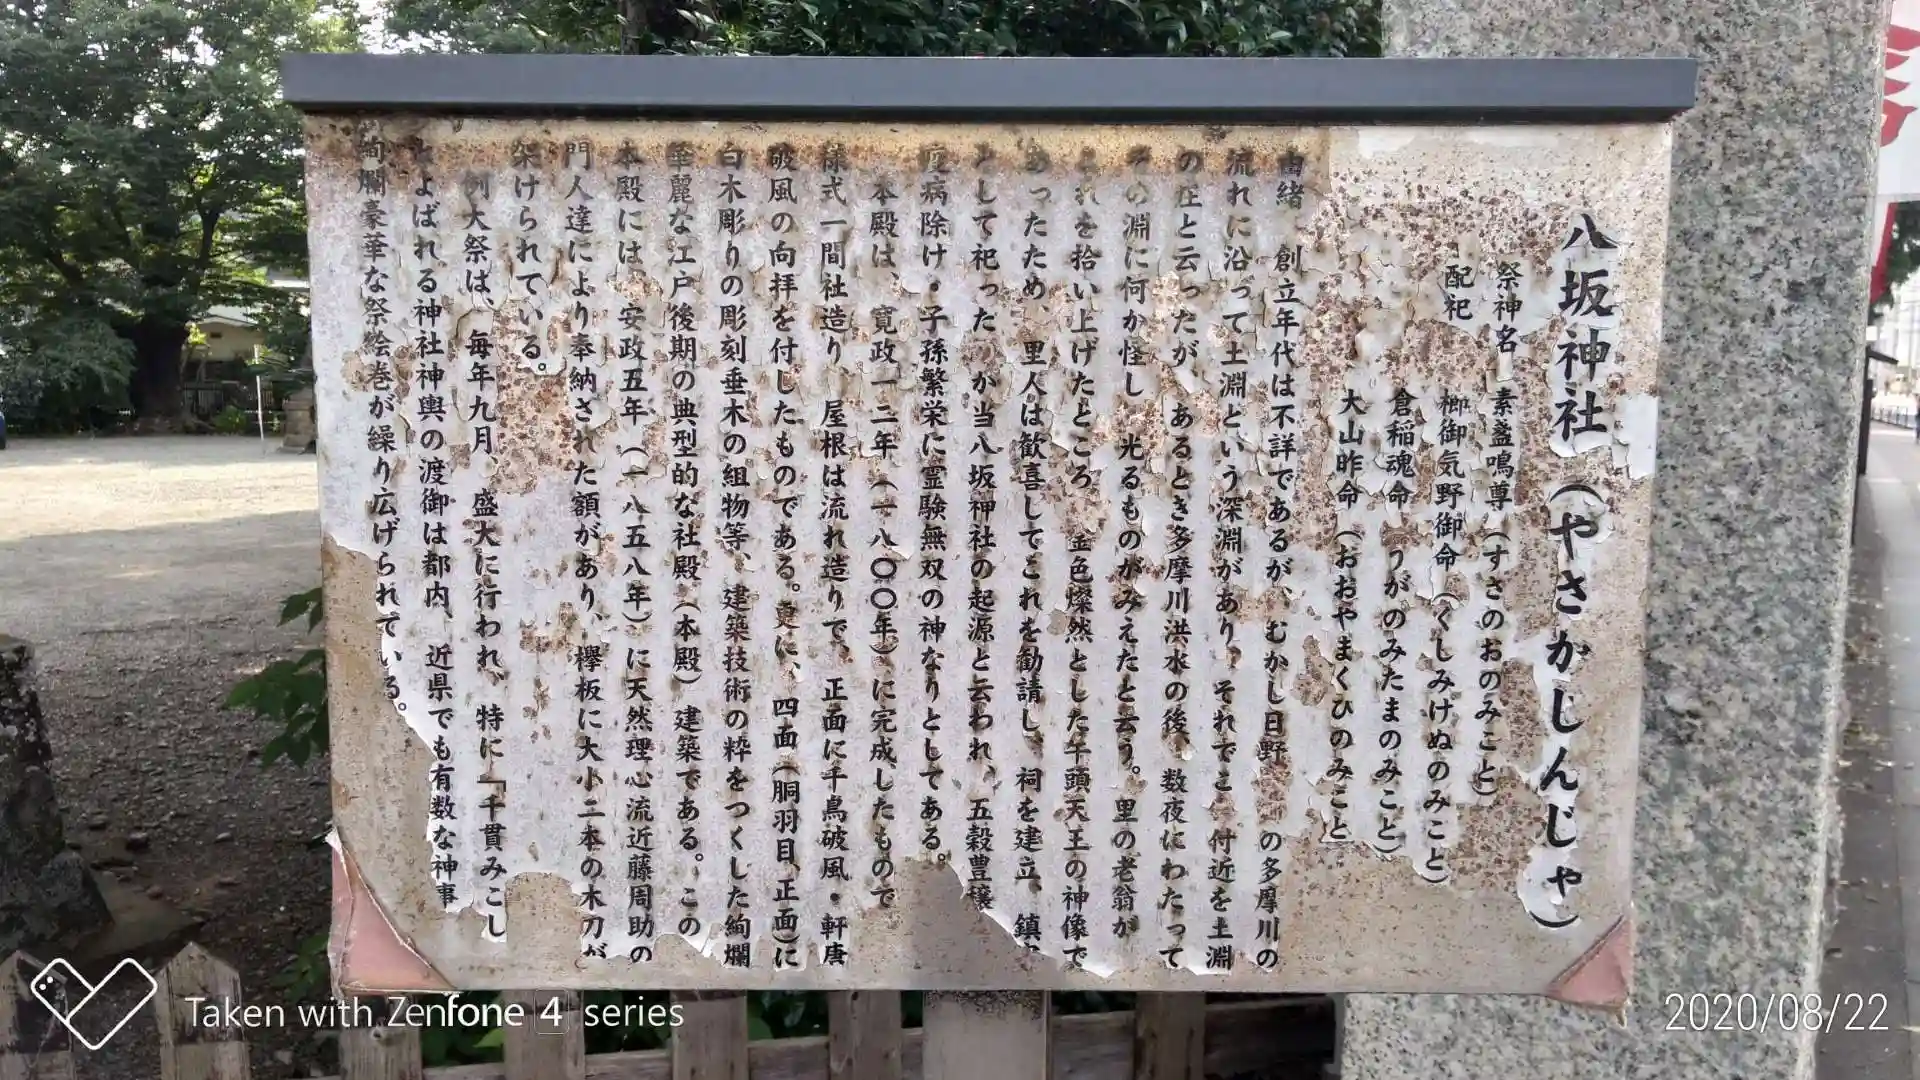 八坂神社（やさかじんじゃ）
祭神名　素盞嗚尊（すさのおのみこと）
配祀　櫛御気野御命（くしみけぬのみこと）
倉稲魂命　うがのみたまのみこと）
大山昨命（おおやまくひのみこと
由緒　創立年代は不詳であるが、むかし日野　の多摩川の
流れに沿って土淵という深淵があり、それでこ　付近を土淵
の庄と云ったが、あるとき多摩川洪水の後、数夜にわたって
その淵に何か怪し　光るものがみえたと云う。里の老翁が
これを拾い上げたところ　金色燦然とした牛頭天王の神像で
あったため、里人は歓喜してこれを勧請し、祠を建立、鎮
として祀ったのが当八坂神社の起源と云われ、五穀豊穣
疫病除け・子孫繁栄に霊験無双の神なりとしてある。
本殿は、寛政一二年（一八〇〇年）に完成したもので
様式一間社造り、屋根は流れ造りで、正面に千鳥破風・軒唐
破風の向拝を付したものである。更に、四面（胴羽目、正面）に
白木彫りの彫刻垂木の組物等、建築技術の粋をつくした絢爛
華麗な江戸後期の典型的な社殿（本殿）建築である。この
本殿には、安政五年（一八五八年）に天然理心流近藤周助の
門人達により奉納された額があり、欅板に大小二本の木刀が
架けられている。
例大祭は、毎年九月　盛大に行われ、特に「千貫みこし
とよばれる神社神輿の渡御は都内、近県でも有数な神事
絢爛豪華な祭絵巻が繰り広げられている。
Taken with Zenfone 4 series
2020/08/22